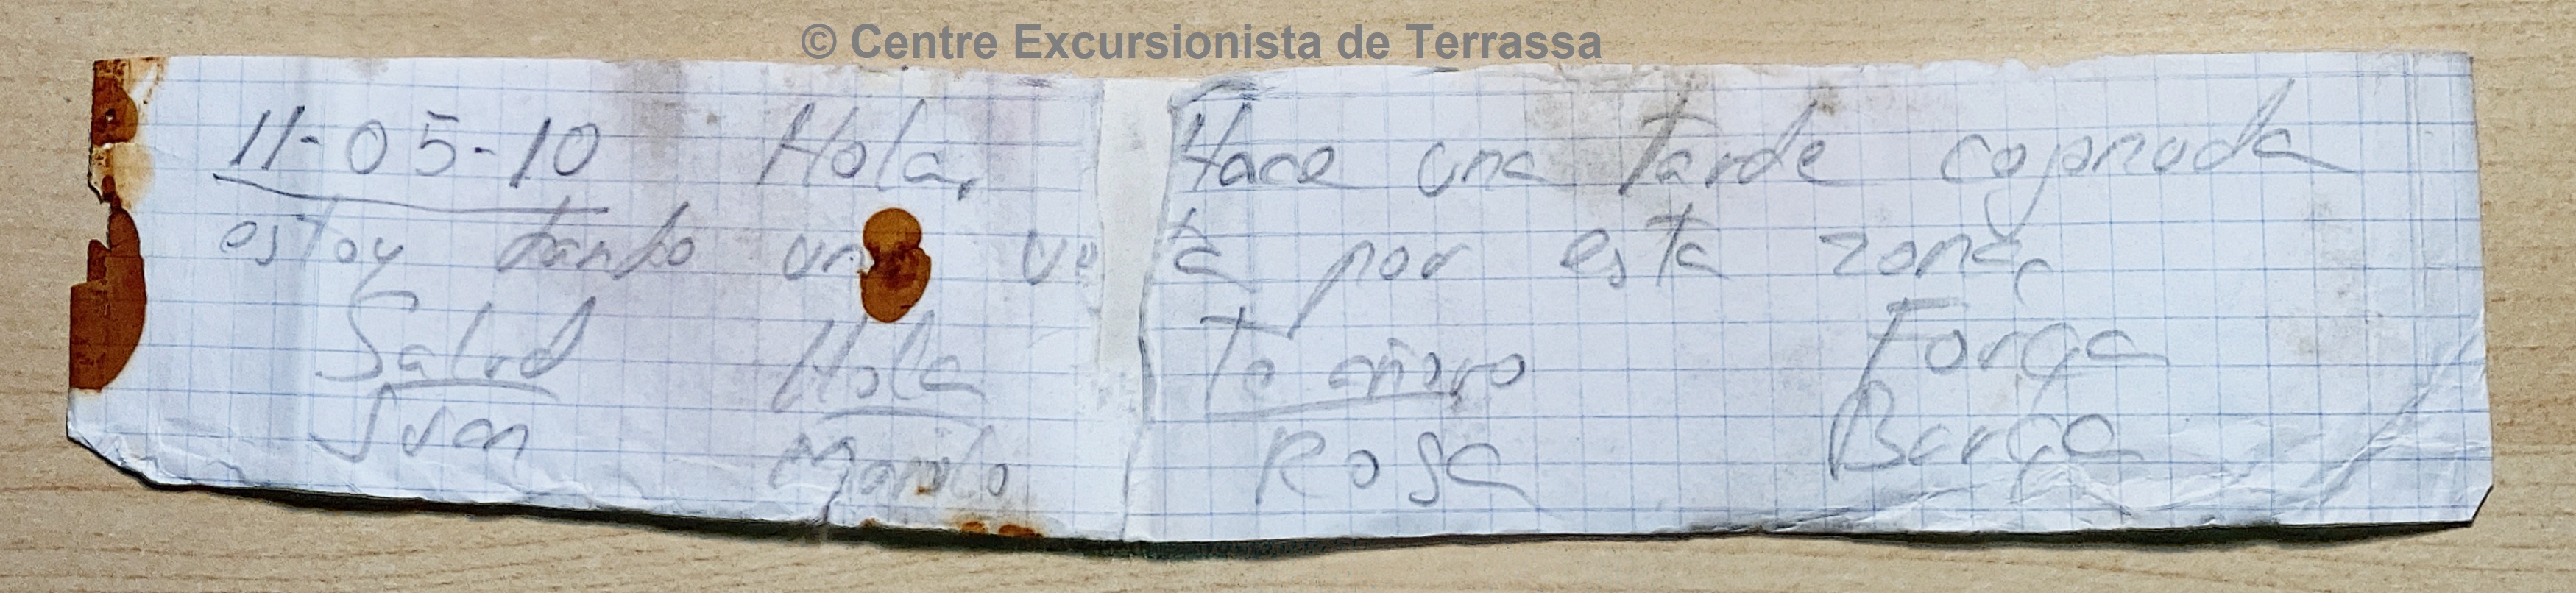 © Centre Excursionista de Terrassa
11-05-10 Hola, Hace una Tarde cojonuda
estoy dando una ve ta por esta zona,
Salud Hola Te añoro Força
Juan Manolo Rosa Barça